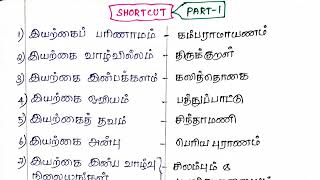 SHORTCUT PART-1
1) இயற்கைப் பரிணாமம் - கம்பராமாயணம்
2) இயற்கை வாழ்வில்லம் - திருக்குறள்
3) இயற்கை இன்பக்கலம் - கலித்தொகை
4) இயற்கை ஓவியம் - பத்துப்பாட்டு
5) இயற்கைத் தவம் - சிந்தாமணி
6) இயற்கை அன்பு - பெரிய புராணம்
7) இயற்கை இன்ப வாழ்வு - சிலம்பும் &
நிலையங்கள்